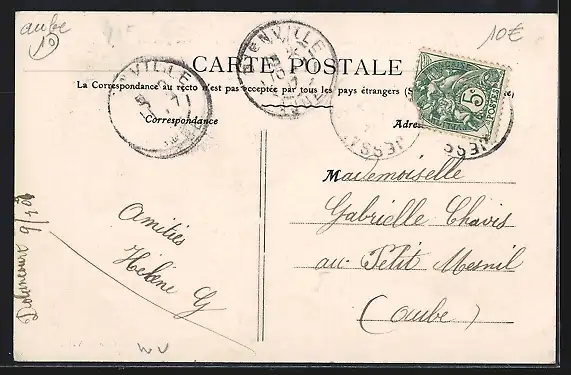 aube
10
10€
CARTE POSTALE
La Correspondance au recto n'est pas acceptée par tous les pays étrangers (S
Correspondance
Adres
ENVILLE
NVILLE
JESSA
5c
POSTES
Mademoiselle
Gabrielle Chavis
au Petit Mesnil
(Aube)
Amitiés
Hélène G
Dolancourt 9/7 06